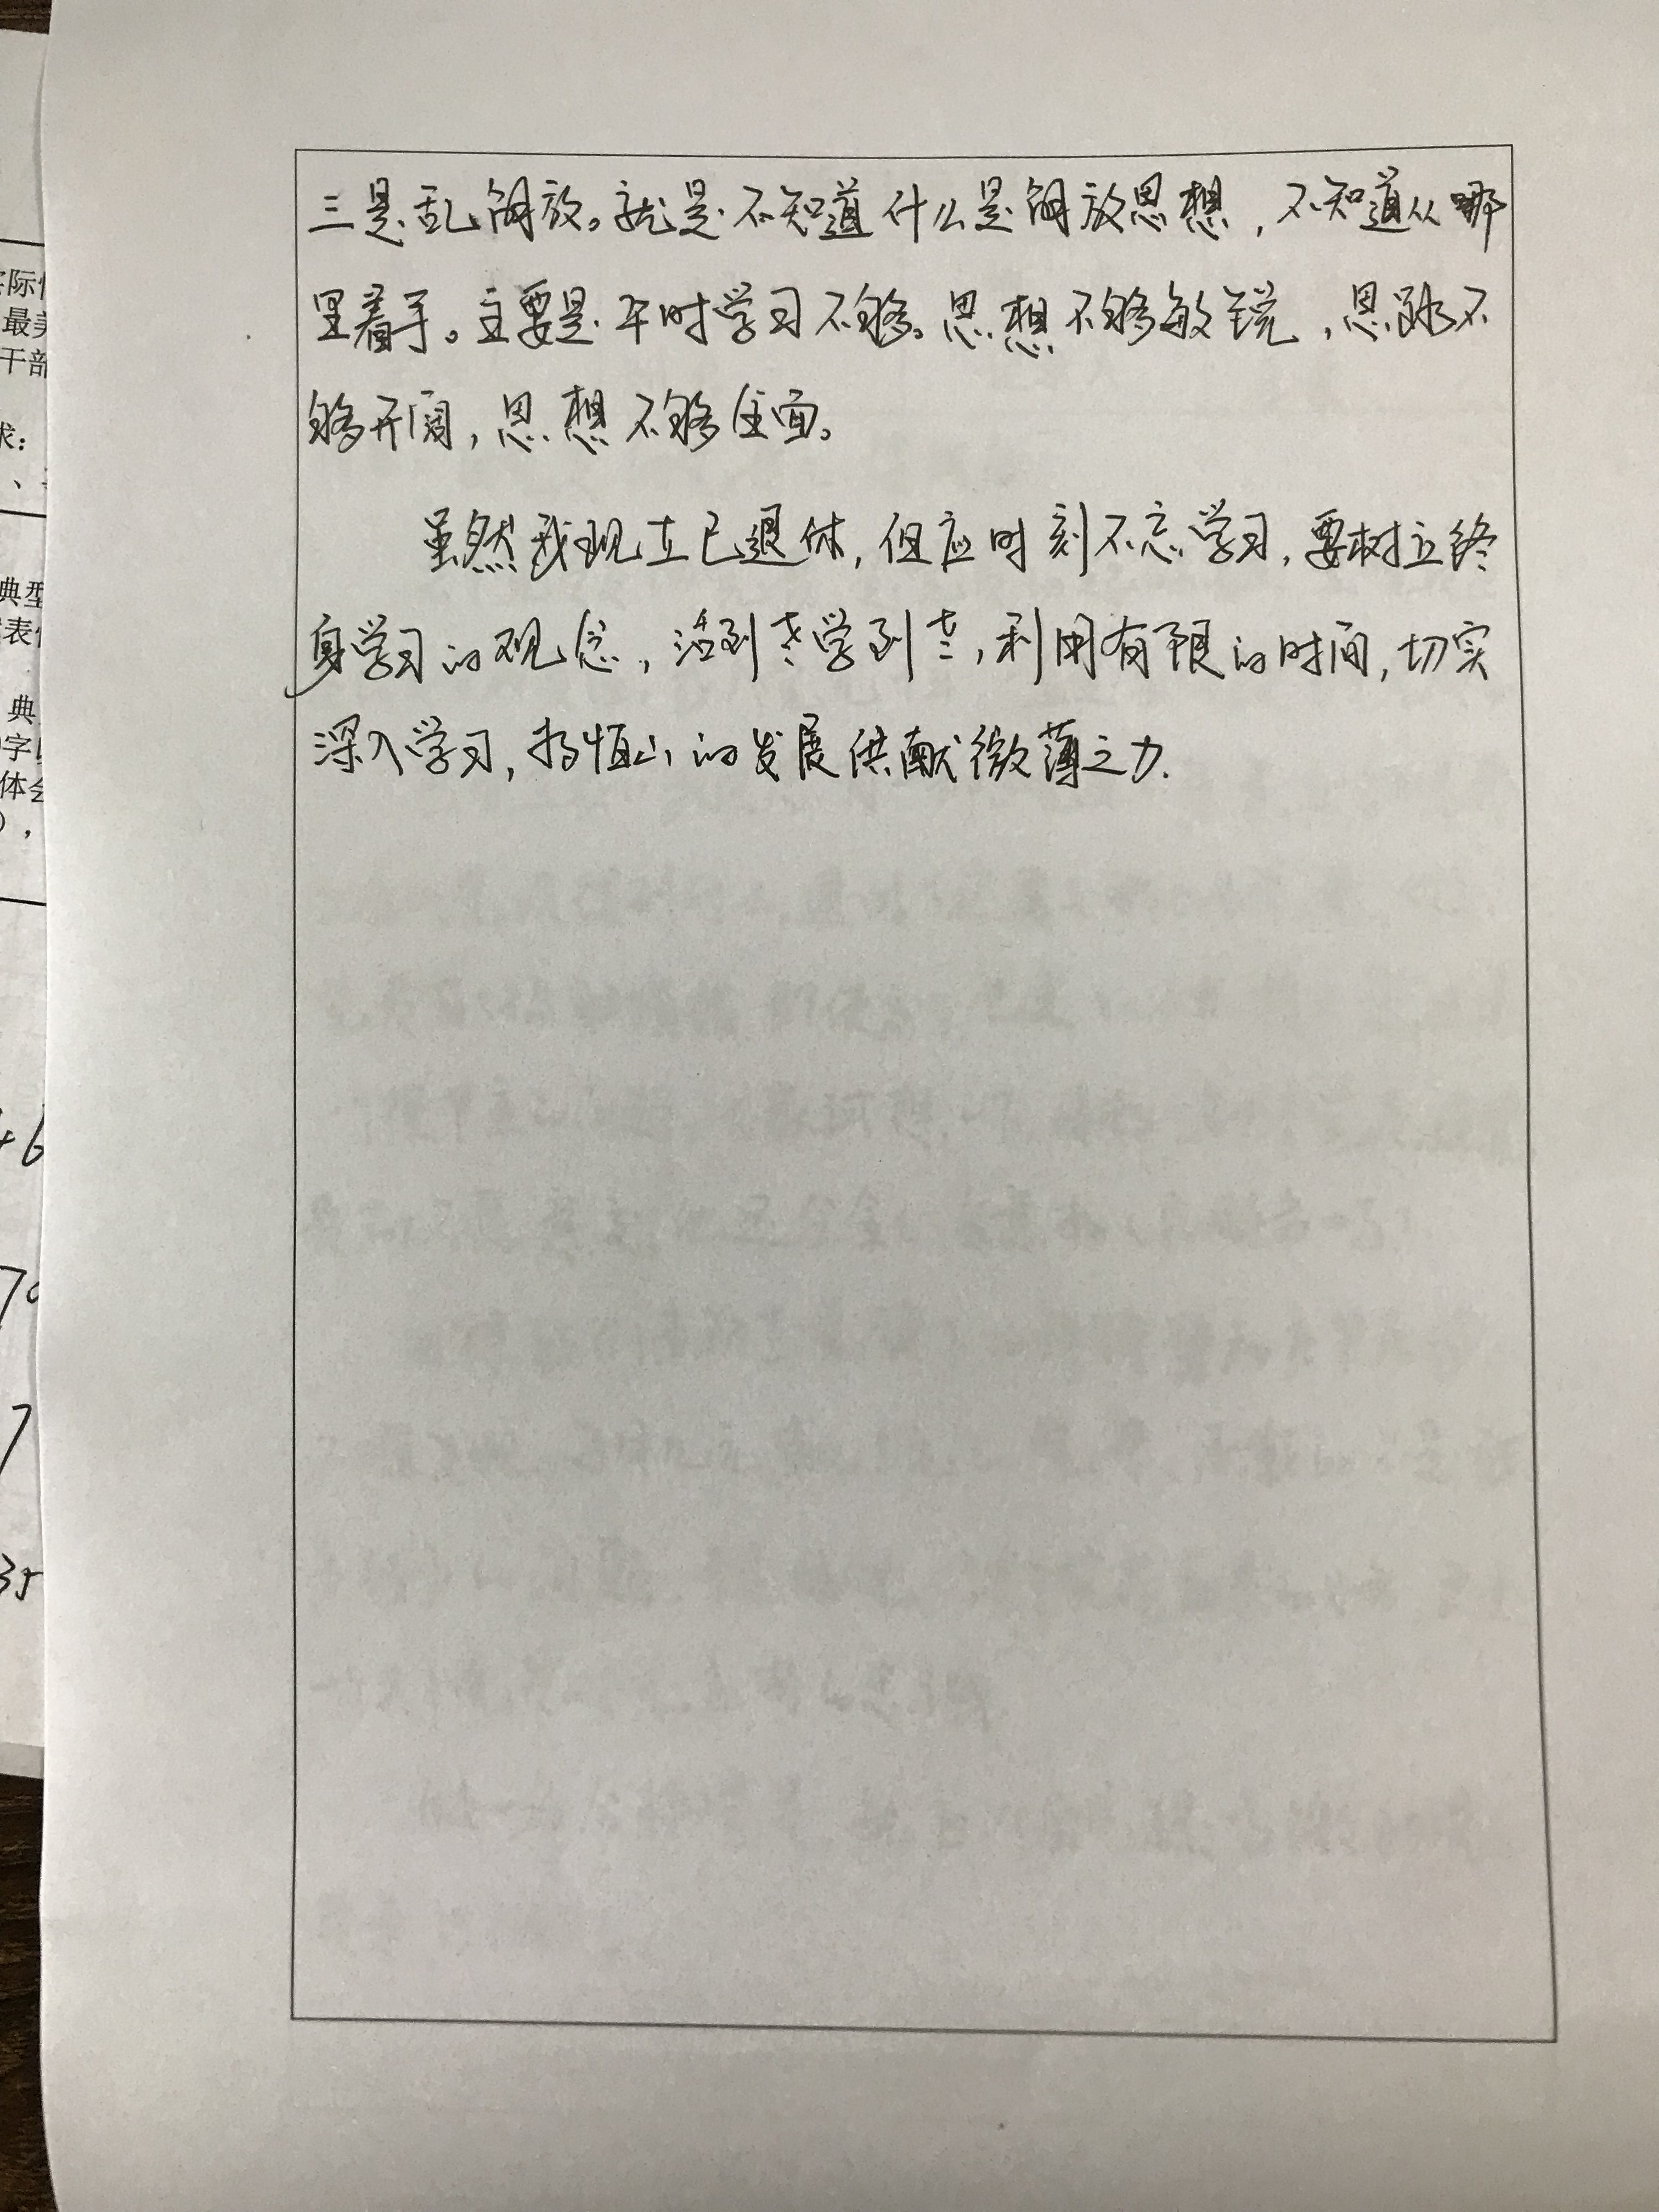 三是乱解放。就是不知道什么是解放思想，不知道从哪
里着手。主要是平时学习不够。思想不够敏锐，思路不
够开阔，思想不够全面。
虽然我现在已退休，但应时刻不忘学习，要树立终
身学习的观念，活到老学到老，利用有限的时间，切实
深入学习，为恒山的发展供献微薄之力.
实际
最美
干部
求：
典型
表
典
字
体会
+6
70
7
35